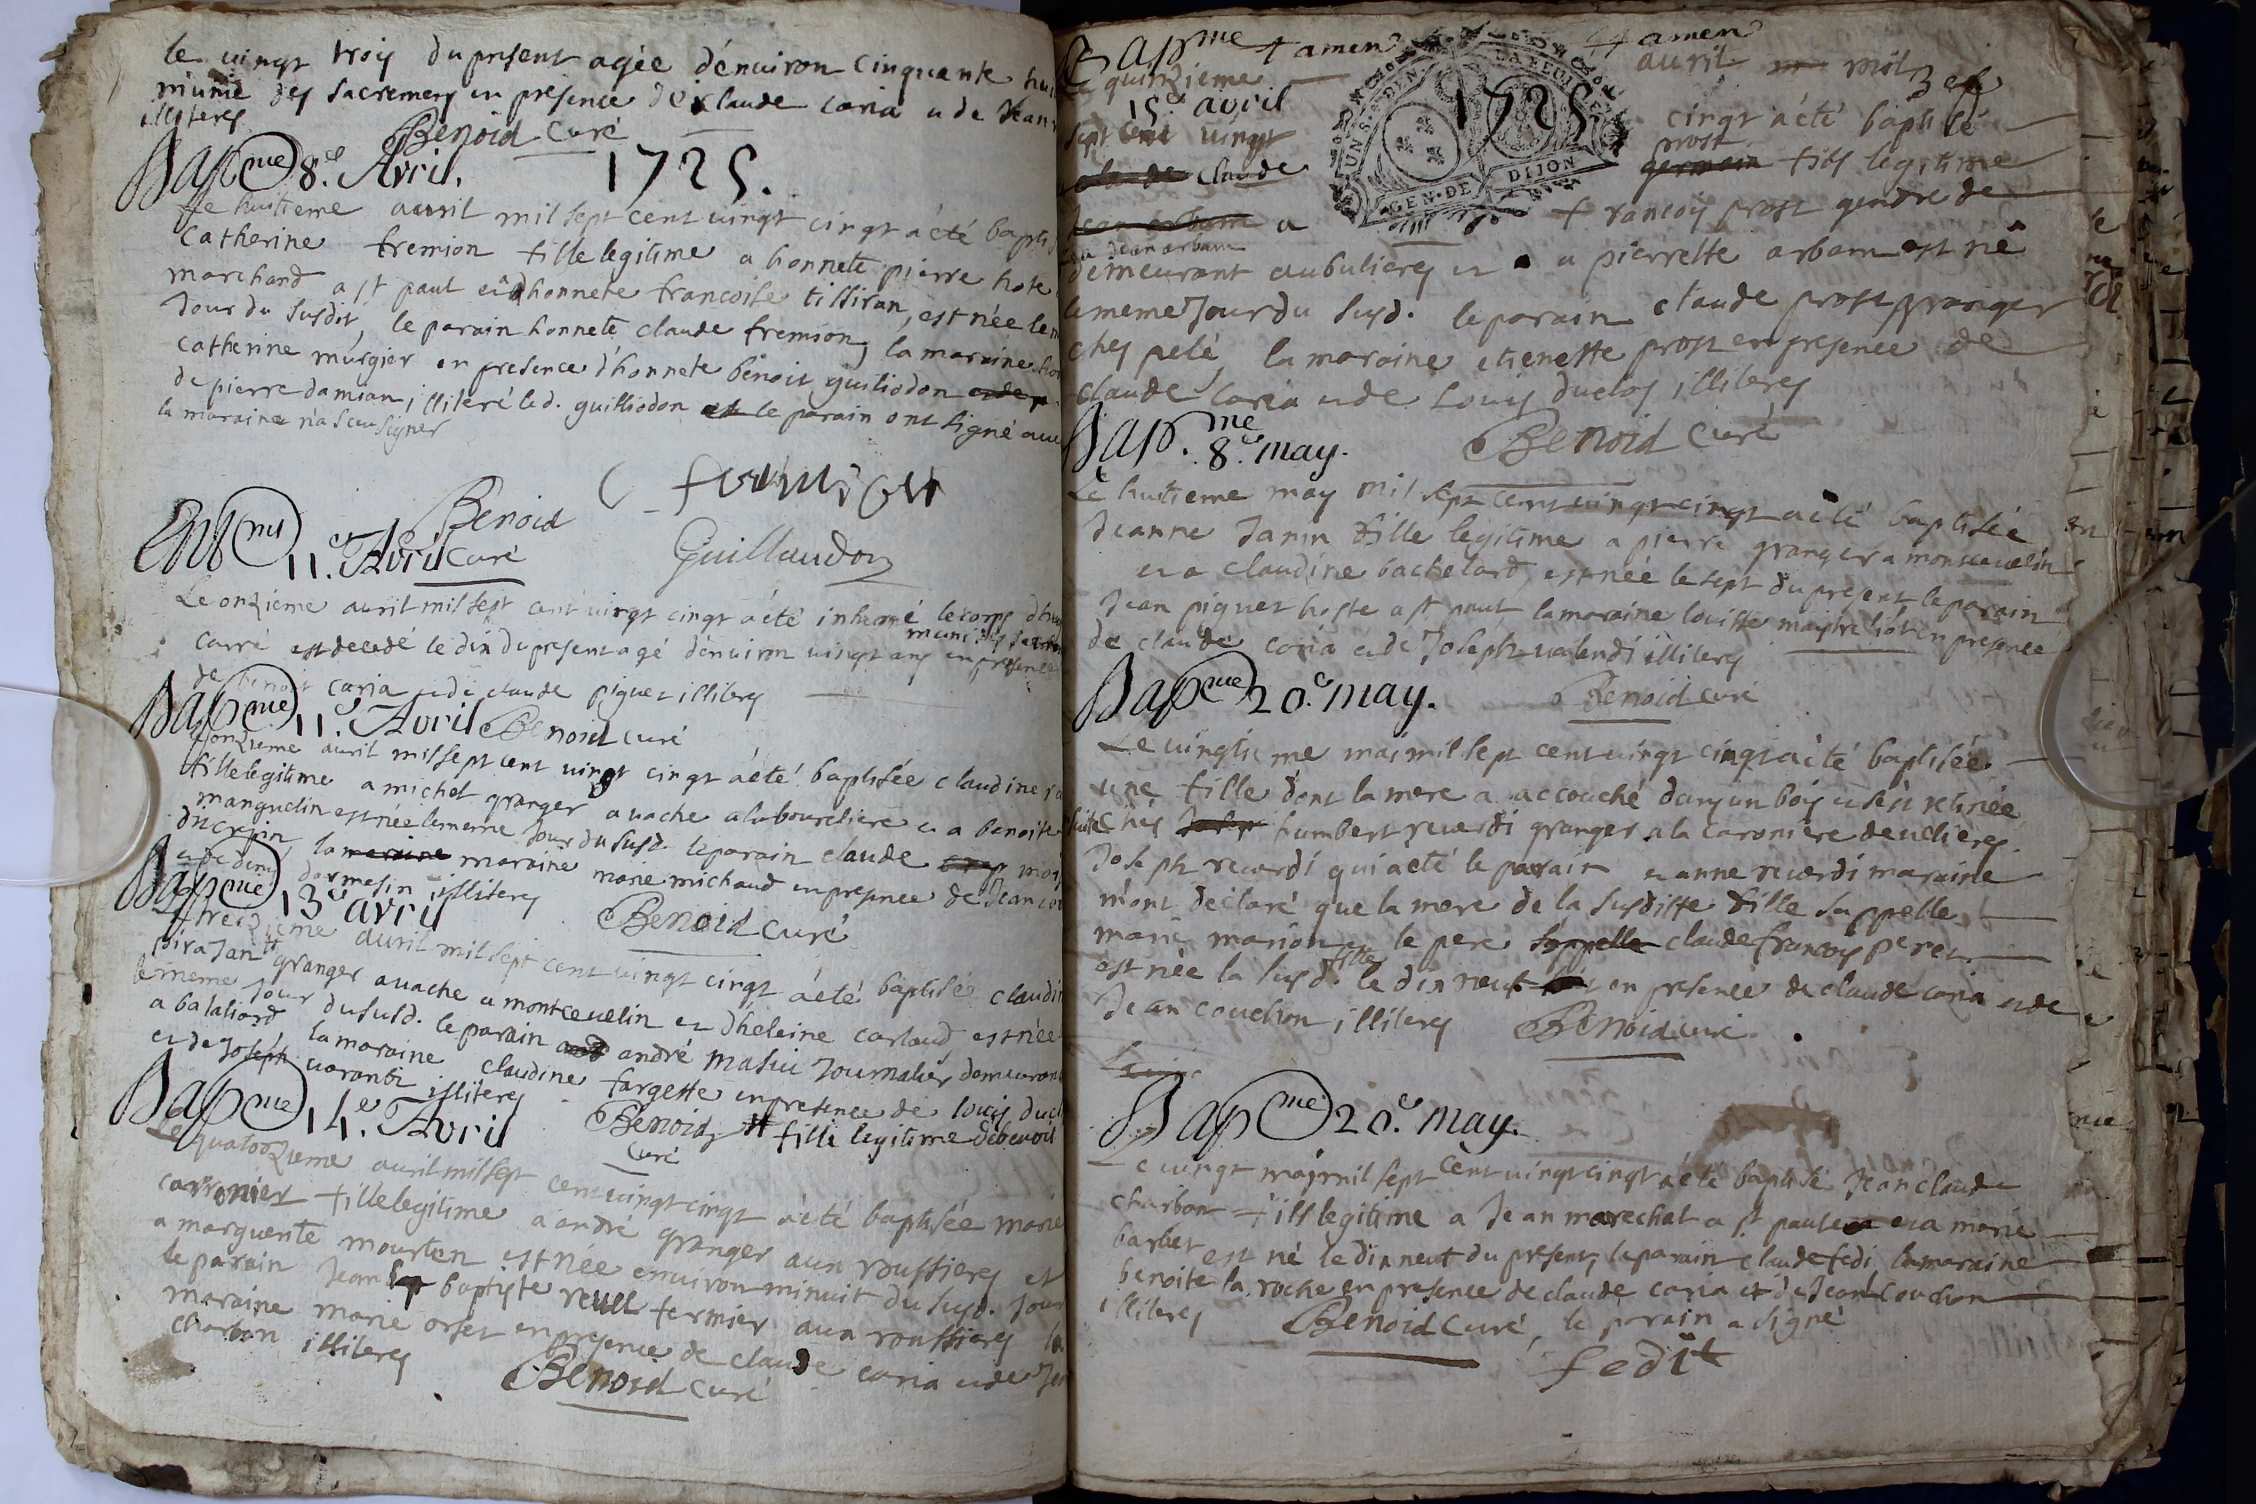 le vingt trois du present agée d'environ cinquante
munie des sacremens en presence de claude caria et de Jean
illiteres
Benoid curé
Bapme 8.e Avril. 1725.
Le huitieme avril mil sept cent vingt cinqt a été bapti
catherine fremion fille legitime a honnete pierre hote
marchand a st paul et a d'honnete francoise tissiran, est née le
Jour du susdit, le parain honnete claude fremion, la maraine
catherine murgier en presence d'honnete benoit guilliodon
de pierre damian, illiteré led. guilliodon et le parain ont signé
la maraine n'a sceu signer
C fremion
Benoid curé
Guillaudon
11.e Avril
Le onzieme avril mil sept cent vingt cinqt a été inhumé le corps
carré est decedé le dix du present agé d'environ vingt ans en presence
de benoit caria et de claude piquet illiteres
Bapme 11.e Avril Benoid curé
onzieme avril mil sept cent vingt cinqt a été baptisée claudine
fille legitime a michel granger a vache a la bourcliere et a benoite
manguelin est née le meme Jour du susd. le parain claude
du crepin, la maraine marie michaud en presence de Jean
illiteres
Benoid curé
Bapme 13.e avril
treizieme avril mil sept cent vingt cinqt a été baptisée
granger a vache a montcevelin et d'heleine carlaud est née
le meme Jour du susd. le parain andré masui Journalier demeurant
a balaliard la maraine claudine fargette en presence de louis
et de Joseph varanti illiteres
Benoid curé
# fille legitime de benoit
Bapme 14.e Avril
Le quatorzieme avril mil sept cent vingt cinqt a été baptisée marie
carronier fille legitime a andré granger aux roussieres et
a marguerite mourten est née environ minuit du susd. Jour
le parain Jean baptiste revel fermier aux roussieres
maraine marie orset en presence de claude caria et de
charbon illiteres
Benoid curé
Bapme + amen + amen
Le quinzieme avril mil
15.e avril 1725
GEN. DE DIJON
sept cent vingt cinqt a été baptisé
claude prost fils legitime
a francois prost gendre de
jean arbam
demeurant aubulieres et a pierrette arbam est né
le meme Jour du susd. le parain claude prost granger
ches pelé, la maraine etienette prost en presence de
claude caria et de Louis duclos illiteres
Benoid curé
Bap.me 8.e may.
Le huitieme may mil sept cent vingt cinqt a été baptisée
Jeanne Janin fille legitime a pierre granger a montcevelin
et a claudine bachelard, est née le sept du present le parain
Jean piquet hoste a st paul la maraine louisse en presence
de claude caria et de Joseph illiteres
Benoid curé
Bapme 20.e may.
Le vingtieme mai mil sept cent vingt cinqt a été baptisée
une fille dont la mere a accouché dans un bois
ches humbert reverdi granger a la caroniere de
Joseph reverdi qui a été le parain et anne reverdi maraine
m'ont declaré que la mere de la susditte fille sappelle
marie marion le pere claude francois peret
est née la susd. fille le dix neuf en presence de claude caria et de
Jean couchon illiteres
Benoid curé
Bapme 20.e may.
Le vingt mai mil sept cent vingt cinqt a été baptisé Jean claude
charbon fils legitime a Jean marechal a st paul et a marie
barbet est né le dix neuf du present, le parain claude fedi la maraine
benoite la roche en presence de claude caria et de Jean couchon
illiteres
Benoid curé, le parain a signé
fedit